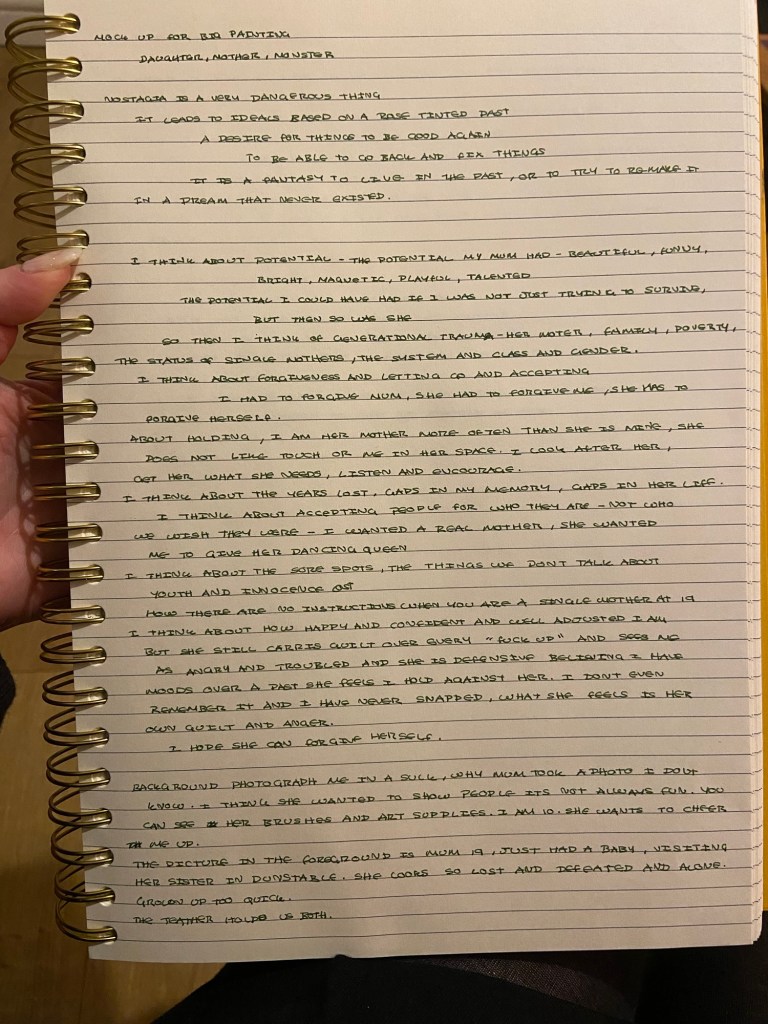 MOCK UP FOR BIG PAINTING
DAUGHTER, MOTHER, MONSTER
NOSTAGIA IS A VERY DANGEROUS THING
IT LEADS TO IDEALS BASED ON A ROSE TINTED PAST
A DESIRE FOR THINGS TO BE GOOD AGAIN
TO BE ABLE TO GO BACK AND FIX THINGS
IT IS A FANTASY TO LIVE IN THE PAST, OR TO TRY TO RE-MAKE IT
IN A DREAM THAT NEVER EXISTED.
I THINK ABOUT POTENTIAL - THE POTENTIAL MY MUM HAD - BEAUTIFUL, FUNNY,
BRIGHT, MAGNETIC, PLAYFUL, TALENTED
THE POTENTIAL I COULD HAVE HAD IF I WAS NOT JUST TRYING TO SURVIVE,
BUT THEN SO WAS SHE
SO THEN I THINK OF GENERATIONAL TRAUMA - HER MOTER, FAMILY, POVERTY,
THE STATUS OF SINGLE MOTHERS, THE SYSTEM AND CLASS AND GENDER.
I THINK ABOUT FORGIVENESS AND LETTING GO AND ACCEPTING
I HAD TO FORGIVE MUM, SHE HAD TO FORGIVE ME, SHE HAS TO
FORGIVE HERSELF.
ABOUT HOLDING, I AM HER MOTHER MORE OFTEN THAN SHE IS MINE, SHE
DOES NOT LIKE TOUCH OR ME IN HER SPACE. I LOOK AFTER HER,
GET HER WHAT SHE NEEDS, LISTEN AND ENCOURAGE.
I THINK ABOUT THE YEARS LOST, GAPS IN MY MEMORY, GAPS IN HER LIFE.
I THINK ABOUT ACCEPTING PEOPLE FOR WHO THEY ARE - NOT WHO
WE WISH THEY WERE - I WANTED A REAL MOTHER, SHE WANTED
ME TO GIVE HER DANCING QUEEN
I THINK ABOUT THE SORE SPOTS, THE THINGS WE DON'T TALK ABOUT
YOUTH AND INNOCENCE
HOW THERE ARE NO INSTRUCTIONS WHEN YOU ARE A SINGLE MOTHER AT 19
I THINK ABOUT HOW HAPPY AND CONFIDENT AND WELL ADJUSTED I AM
BUT SHE STILL CARRIS GUILT OVER EVERY "FUCK UP" AND SEES ME
AS ANGRY AND TROUBLED AND SHE IS DEFENSIVE BELIEVING I HAVE
MOODS OVER A PAST SHE FEELS I HOLD AGAINST HER. I DON'T EVEN
REMEMBER IT AND I HAVE NEVER SNAPPED, WHAT SHE FEELS IS HER
OWN GUILT AND ANGER.
I HOPE SHE CAN FORGIVE HERSELF.
BACKGROUND PHOTOGRAPH ME IN A SULK, WHY MUM TOOK A PHOTO I DON'T
KNOW. I THINK SHE WANTED TO SHOW PEOPLE ITS NOT ALWAYS FUN. YOU
CAN SEE HER BRUSHES AND ART SUPPLIES. I AM 10. SHE WANTS TO CHEER
ME UP.
THE PICTURE IN THE FOREGROUND IS MUM 19, JUST HAD A BABY, VISITING
HER SISTER IN DUNSTABLE. SHE LOOKS SO LOST AND DEFEATED AND ALONE.
GROWN UP TOO QUICK.
THE HOLDS US BOTH.